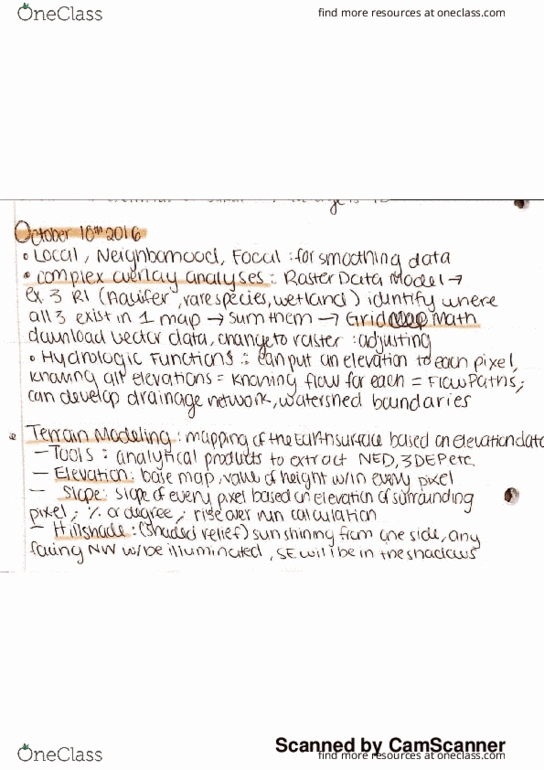 OneClass
find more resources at oneclass.com
October 10th 2016
• Local, Neighborhood, Focal : for smoothing data
• complex overlay analyses : Raster Data Model →
ex 3 RI (Aquifer, rare species, wetland) identify where
all 3 exist in 1 map → sum them → Grid Math
download vector data, change to raster : adjusting
• Hydrologic Functions : can put an elevation to each pixel,
knowing all elevations = knowing flow for each = Flow Paths;
can develop drainage network, watershed boundaries
• Terrain Modeling : mapping of the Earth surface based on elevation data
— Tools : analytical products to extract NED, 3DEP etc.
— Elevation : base map, value of height w/in every pixel
— Slope : slope of every pixel based on elevation of surrounding
pixel ; % or degree ; rise over run calculation
— Hillshade : (shaded relief) sun shining from one side, any
facing NW w/ be illuminated, SE will be in the shadows
Scanned by CamScanner
OneClass
find more resources at oneclass.com